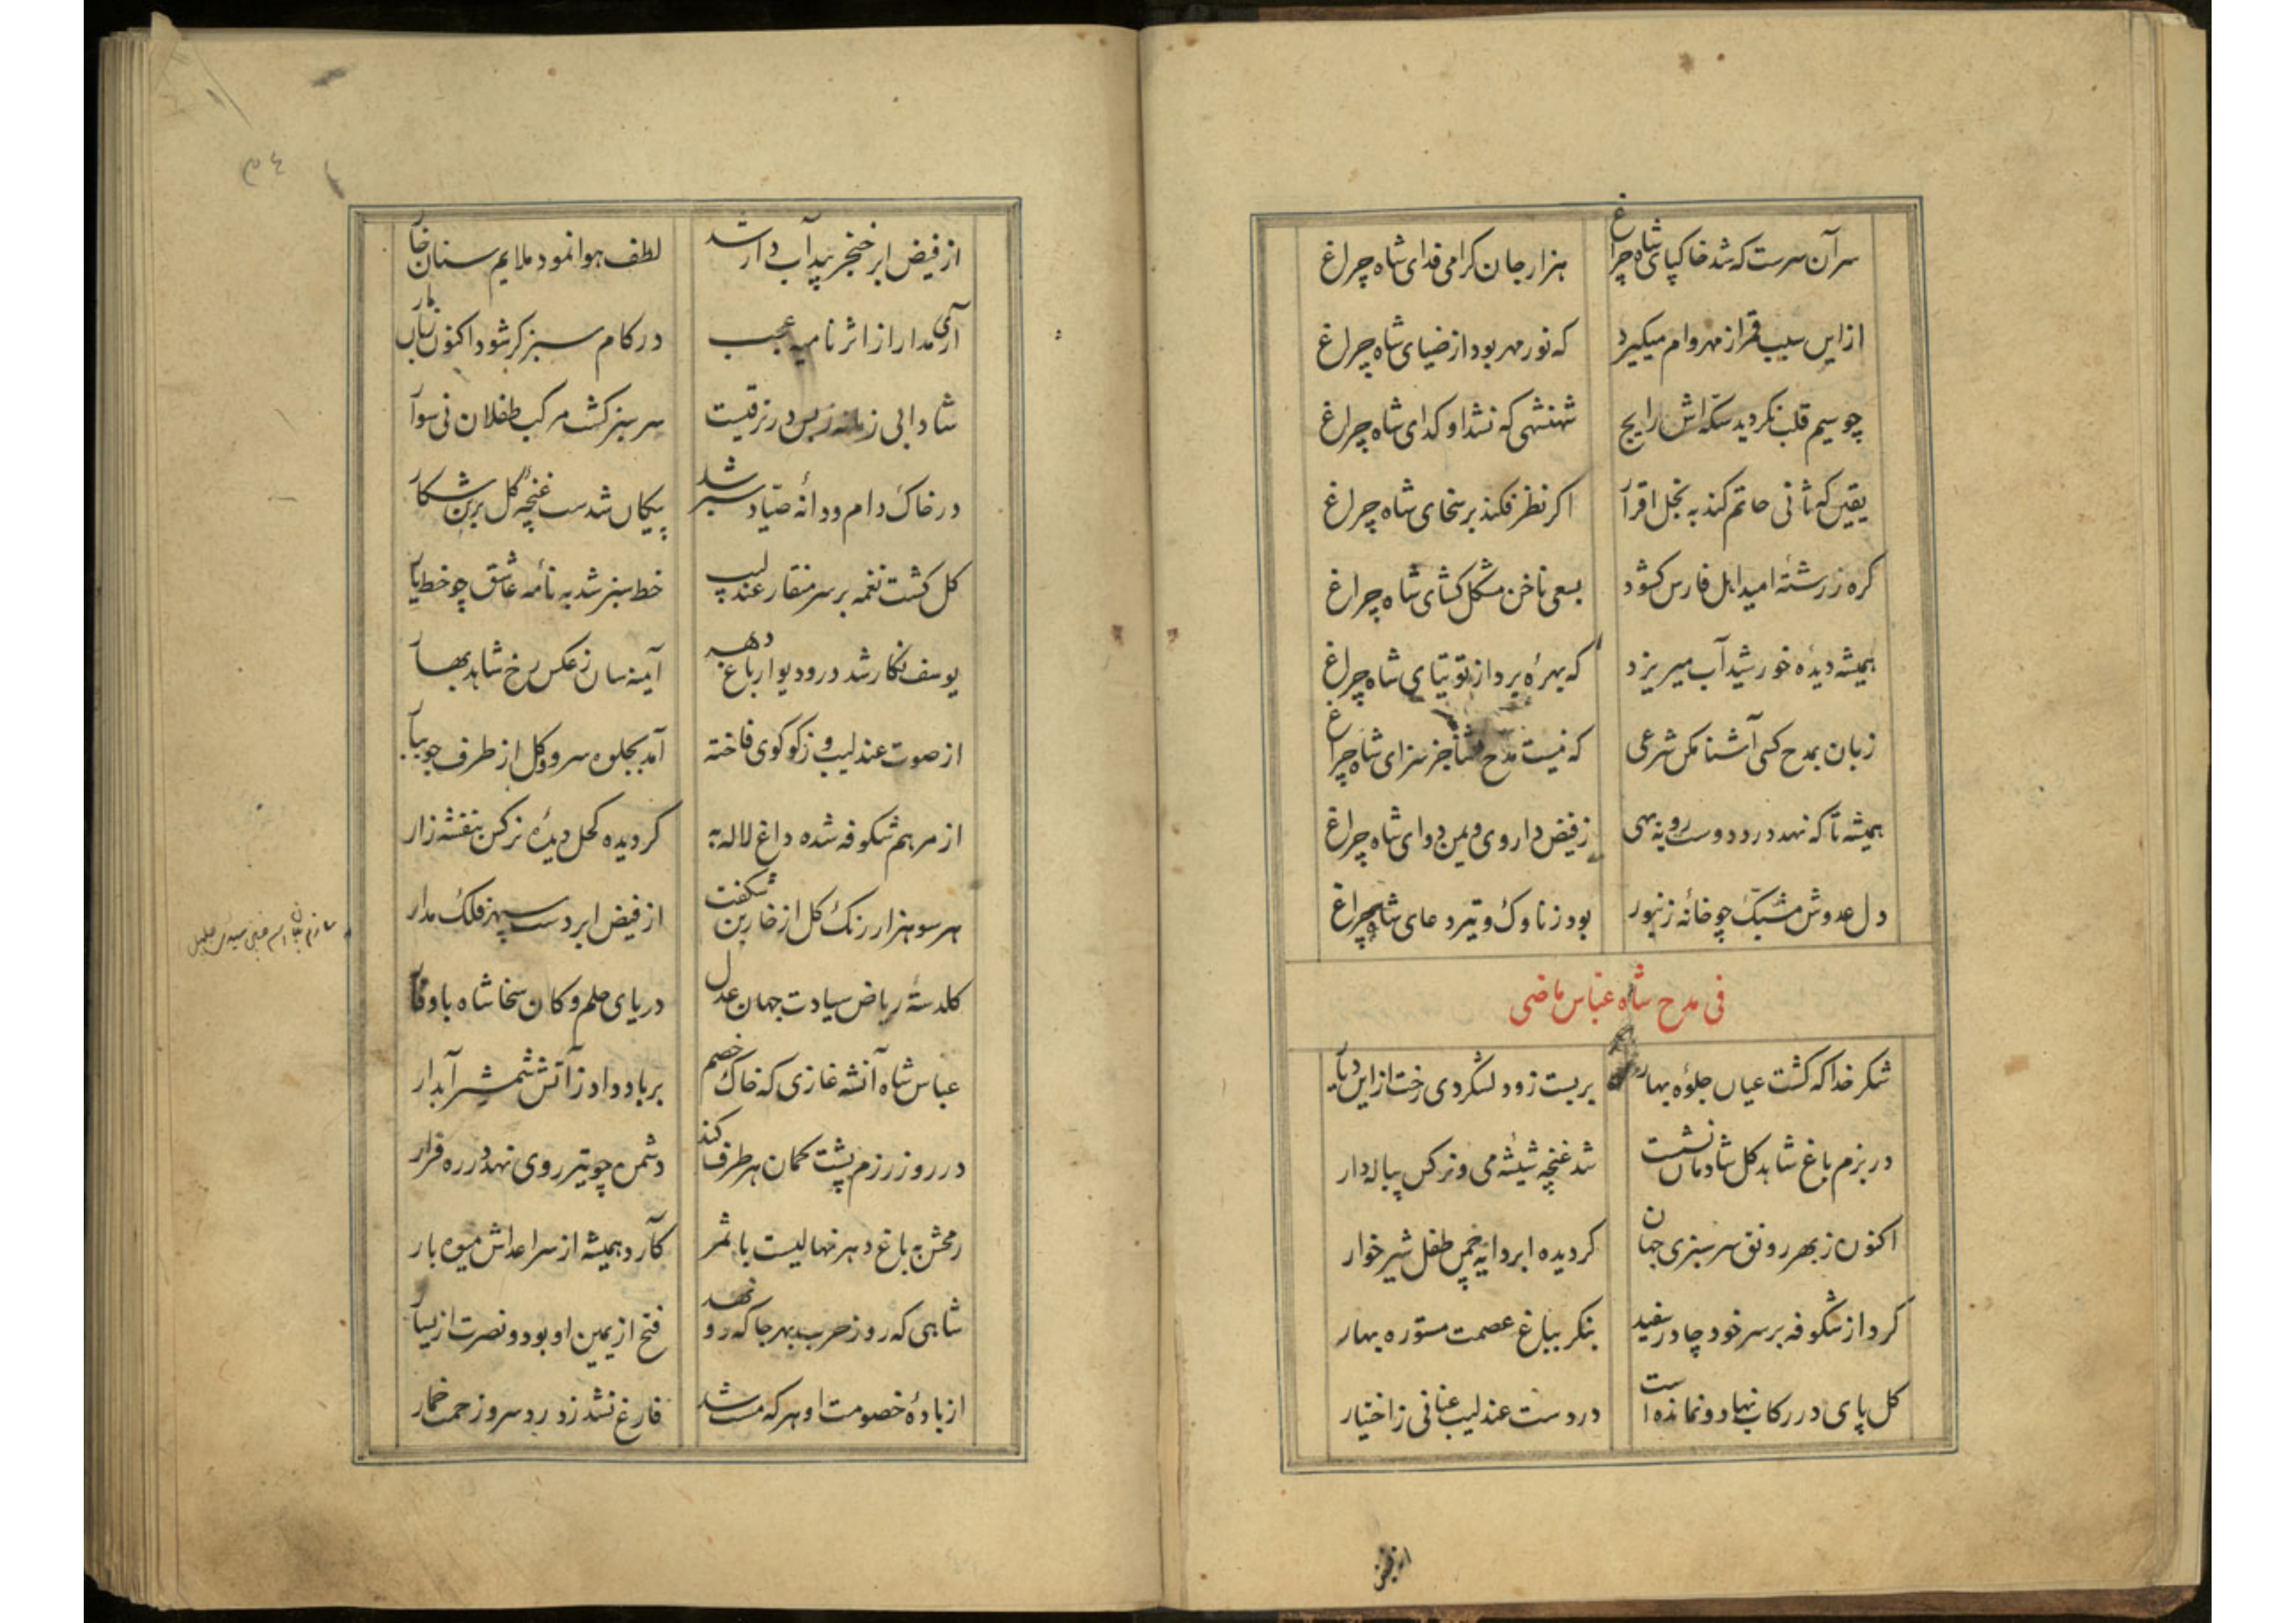 سر آن سرست که شد خاکپای شاه چراغ هزار جان کرامی فدای شاه چراغ
از این سبب قمر از مهر وام میکیرد که نور مهر بود از ضیای شاه چراغ
چو سیم قلب نکردید سکه‌اش رایج شهنشهی که نشد او کدای شاه چراغ
یقین که ثانی حاتم کند به بخل اقرار اکر نظر فکند بر سخای شاه چراغ
کره ز رشتهٔ امید اهل فارس کشود بسعی ناخن مشکل کشای شاه چراغ
همیشه دیدهٔ خورشید آب میریزد که بهره برد از توتیای شاه چراغ
زبان بمدح کسی آشنا مکن شرعی که نیست مدح و ثنا جز سزای شاه چراغ
همیشه تا که نهد درد دوست رو به بهی ز فیض داروی و یمن دوای شاه چراغ
دل عدوش مشبک چو خانهٔ زنبور بود ز ناوک و تیر دعای شاه چراغ
فی مدح شاه عباس ماضی
شکر خدا که کشت عیان جلوه بهار بربست زود لشکر دی رخت از این دیار
در بزم باغ شاهد کل شادمان نشست شد غنچه شیشهٔ می و نرکس پیاله دار
اکنون ز بهر رونق سرسبزی جهان کردیده ابر دایه چمن طفل شیرخوار
کرد از شکوفه بر سر خود چادر سفید بنکر بباغ عصمت مستوره بهار
کل پای در رکاب نهاد و نمانده است در دست عندلیب عنانی ز اختیار
از فیض
از فیض ابر خنجر بید آب دار شد لطف هوا نمود ملایم سنان خار
آری مدار از اثر نامیه عجب در کام سبز کر شود اکنون زبان مار
شادابی زمانه ز بس در ترقیست سرسبز کشت مرکب طفلان نی سوار
در خاک دام و دانهٔ صیاد سبز شد پیکان شدست غنچهٔ کل بر تن شکار
کل کشت نغمه بر سر منقار عندلیب خط سبز شد به نامهٔ عاشق چو خط یار
یوسف نکار شد در و دیوار باغ دهر آینه سان ز عکس رخ شاهد بهار
از صوت عندلیب و ز کوکوی فاخته آمد بجلوه سرو و کل از طرف جویبار
از مرهم شکوفه شده داغ لاله به کردیده کحل دیدهٔ نرکس بنفشه زار
هر سو هزار رنک کل از خاربن شکفت از فیض ابر دست سپهر فلک مدار
کلدستهٔ ریاض سیادت جهان عدل دریای حلم و کان سخا شاه با وقار
عباس شاه آنشه غازی که خاک خصم بر باد داد ز آتش شمشیر آبدار
در روز رزم پشت کمان هر طرف کند دشمن چو تیر روی نهد در ره فرار
رمحش به باغ دهر نهالیست با ثمر کآرد همیشه از سر اعداش میوه بار
شاهی که روز حرب بهر جا که رو نهد فتح از یمین او بود و نصرت از یسار
از بادهٔ خصومت او هر که مست شد فارغ نشد ز درد سر و زحمت خمار